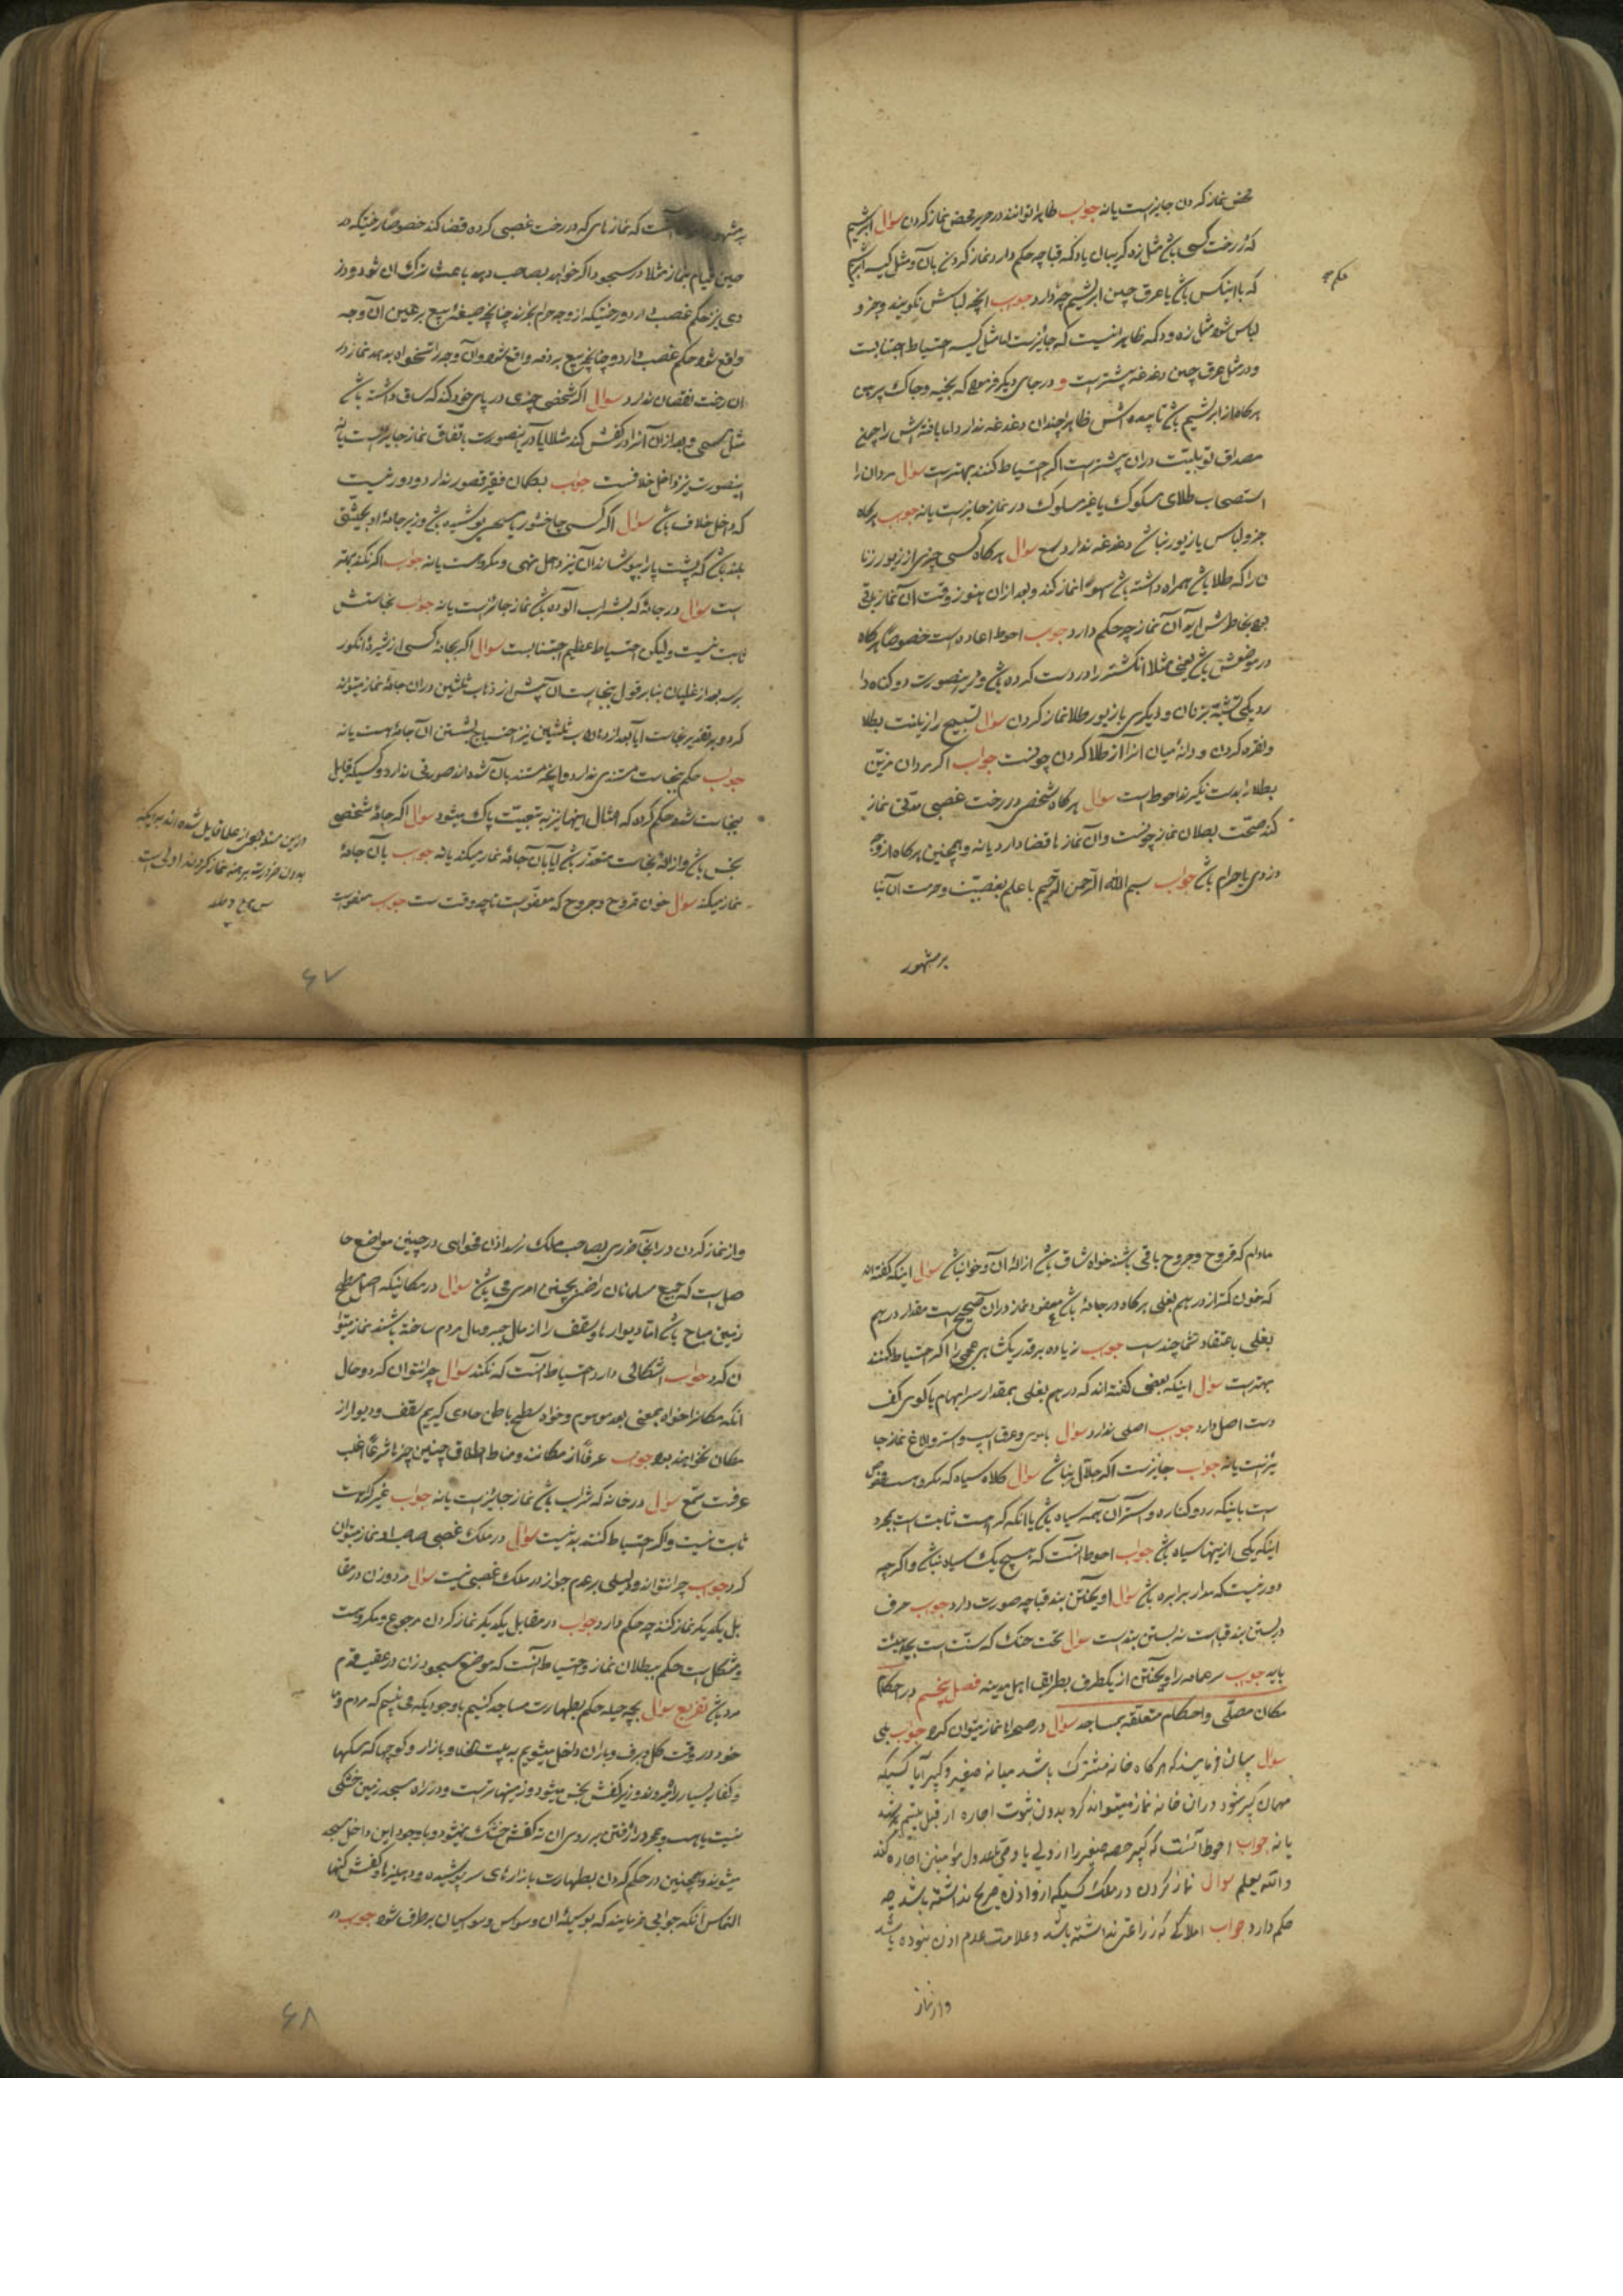 محض نماز کردن جایزست یا نه جواب ظاهرا نتوانند در حریر محض نماز کردن سوال ابریشم
که در رخت کسی باشد مثل زه گریبان یا دکمه قباچه حکم دارد نماز کردن بآن و مثل کیسه ابریشم
که با اینکس باشد یا عرق چین ابریشم چه دارد جواب آنچه لباس نگویند و جزو
حکم
لباس شود مثل زه و دکمه ظاهر اینست که جایزست اما مثل کیسه احتیاط اجتنابست
و در مثل عرق چین دغدغه بیشترست و در جای دیگر فرموده که بخیه و چاک پیرهن
هرگاه از ابریشم باشد ظاهرا چندان دغدغه ندارد اما بافته اش را چون
مصداق ثوبیت در آن بیشترست اگر احتیاط کنند بهترست سوال مردان را
استصحاب طلای مسکوک یا غیر مسلوک در نماز جایزست یا نه جواب هرگاه
جزو لباس یا زیور نباشد دغدغه ندارد سوال هرگاه کسی چیزی از زیور زنا
ن را که طلا باشد همراه داشته باشد سهوا نماز کند و بعد از آن هنوز وقت آن نماز باقی
بود بخاطرش آید آن نماز چه حکم دارد جواب احوط اعاده است خصوصا هرگاه
در موضعش باشد یعنی مثلا انگشتر را در دست کرده باشد و درینصورت دو گناه دا
رد یکی تشبه بزنان و دیگری با زیور طلا نماز کردن سوال تسبیح را زینت بطلا
و نقره کردن و دانهٔ میان آنرا از طلا کردن چونست جواب اگر مردان مزین
بطلا را بدست نگیرند احوط است سوال هرگاه شخصی در رخت غصبی مدتی نماز
کند صحت بطلان نماز چونست و آن نماز ها قضا دارد یا نه و همچنین هرگاه از وجه
دزدی یا حرام باشد جواب بسم الله الرحمن الرحیم با علم بغصبیت و حرمت آن بنا
بر مشهور
بر مشهور آنست که نماز های که در رخت غصبی کرده قضا کند خصوصا رختیکه در
حین قیام بنماز مثلا در سجود اگر خواهد بصاحب دهد باعث ترک آن شود و دز
دی نیز حکم غصب دارد و رختیکه از وجه حرام بخرند چنانچه صیغهٔ بیع بر عین آن وجه
واقع شود حکم غصب دارد و چنانچه بیع بر ذمه واقع شود و آن وجه را تنخواه بدهد نماز در
آن رخت نقصان ندارد سوال اگر شخصی چیزی در پای خود کند که ساق داشته باشد
مثل مسحی و بعد از آن آنرا در کفش کند مثلا آیا درینصورت باتفاق نماز جایزست یا نه
اینصورت نیز داخل خلافست جواب بگمان فقیر قصور ندارد و دور نیست
که داخل خلاف باشد سوال اگر کسی چاخشور یا مسحی پوشیده باشد و زیر جامهٔ او بحیثیتی
بلند باشد که پشت پا را بپوشاند آن نیز داخل نهی و مکروهست یا نه جواب اگر نکند بهتر
است سوال در جامهٔ که بشراب آلوده باشد نماز جایزست یا نه جواب نجاستش
ثابت نیست و لیکن احتیاط عظیم اجتنابست سوال اگر بجامهٔ کسی از شیرهٔ انگور
برسد بعد از غلیان بنا بر قول بنجاست آن پیش از ذهاب ثلثین در آن جامه نماز میتواند
کرد و بر تقدیر نجاست آیا بعد از ذهاب ثلثین نیز احتیاج بشستن آن جامه است یا نه
جواب حکم بنجاست مستندی ندارد و آنچه مستند بآن شده اند صورتی ندارد و کسیکه قایل
بنجاست شده حکم کرده که امثال اینها نیز به تبعیت پاک میشود سوال اگر جامهٔ شخصی
نجس باشد و ازالهٔ نجاست متعذر باشد آیا بآن جامه نماز میکند یا نه جواب بآن جامه
نماز میکند سوال خون قروح و جروح که معفوست تا چه وقت ست جواب معفوست
درین مسئله بعضی از علما قایل شده اند براینکه
بدون ضرورت برهنه نماز کردن اولی است
۶۷
مادام که قروح و جروح باقی باشند خواه شاق باشد ازالهٔ آن و خواه نباشد سوال اینکه گفته اند
که خون کمتر از درهم بغلی هرگاه در جامه باشد معفو و نماز در آن صحیح است مقدار درهم
بغلی باعتقاد شما چندست جواب زیاده بر قدر یکشاهی عجمی را اگر احتیاط کنند
بهترست سوال اینکه بعضی گفته اند که درهم بغلی بمقدار سر ابهام یا گوی کف
دست اصل دارد جواب اصلی ندارد سوال با موی و عرق اسب و استر و الاغ نماز جا
یزست یا نه جواب جایزست اگر جلال نباشد سوال کلاه سیاه که مکروهست مخصوص
است باینکه رو و کناره و آستر آن همه سیاه باشد یا آنکه کراهت ثابت است بمجرد
اینکه یکی از اینها سیاه باشد جواب احوط آنست که هیچ یک سیاه نباشد و اگر چه
دور نیست که مدار بر ابره باشد سوال آویختن بند قباچه صورت دارد جواب حرف
در بستن بند قباست نه بستن بندست سوال تحت حنک که سنت است بچه هیئت
باید جواب سر عمامه را آویختن از یکطرف بطریق اهل مدینه فصل پنجم در احکام
مکان مصلی و احکام متعلقه بمساجد سوال در صحراها نماز میتوان کرد جواب بلی
سوال بیان فرمایند که هرگاه خانه مشترک باشد میانه صغیر و کبیر آیا کسیکه
مهمان کبیر شود در آن خانه نماز میتواند کرد بدون ثبوت اجاره از قبل یتیم
یا نه جواب احوط آنست که کبیر حصه صغیر را از ولی یا وصی یا عدول مؤمنین اجاره کند
و الله یعلم سوال نماز کردن در ملک کسیکه ازو اذن صریح نداشته باشد چه
حکم دارد جواب املاکی که زراعتی نداشته باشد و علامت عدم اذن نبوده باشد
و از نماز
و از نماز کردن در آنجا ضرری بصاحب ملک نرسد اذن فحوایی در چنین مواضع حا
صل است که جمیع مسلمانان راضی بچنین امری می باشند سوال در مکانیکه اصل سطح
زمین مباح باشد اما دیوارها و سقف را از مال جبر و مال مردم ساخته باشند نماز میتوا
ن کرد جواب اشکالی دارد احتیاط آنست که نکند سوال چرا نتوان کرد و حال
آنکه مکان را خواه بمعنی بعد موهوم و خواه سطح باطن حاوی گیریم سقف و دیوار از
مکان نخواهند بود جواب عرفا از مکانند و مناط اطلاق چنین چیزها شرعا اغلب
عرفست سوال در خانه که شراب باشد نماز جایزست یا نه جواب غیر کراهت
ثابت نیست و اگر احتیاط کنند بد نیست سوال در ملک غصبی صاحب او نماز میتوان
کرد جواب چرا نتواند و دلیلی بر عدم جواز در ملک غصبی نیست سوال مرد و زن در مقا
بل یکدیگر نماز کنند چه حکم دارد جواب در مقابل یکدیگر نماز کردن مرجوع و مکروهست
و مشکل است حکم ببطلان نماز و احتیاط آنست که موضع سجود زن در عقب قدم
مرد باشد تفریع سوال بچه حیله حکم بطهارت مساجد کنیم با وجودیکه می بینیم که مردم و ما
خود در وقت گل و برف و باران داخل میشویم به بیت الخلا و بازار و کوچها که سگها
و کفار بسیار را میروند و زیر کفش نجس میشود و زمینها ترست و در راه مسجد زمین خشکی
نیست یا هست و بمجرد راه رفتن بر روی آن ته کفش خشک نمیشود و با وجود این داخل مسجد
میشوند و همچنین در حکم کردن بطهارت بازارهای سر پوشیده و دهلیزها و کفش کنها
التماس آنکه جوابی فرمایند که بوسیلهٔ آن وسواس وسواسیان برطرف شود جواب در
۶۸